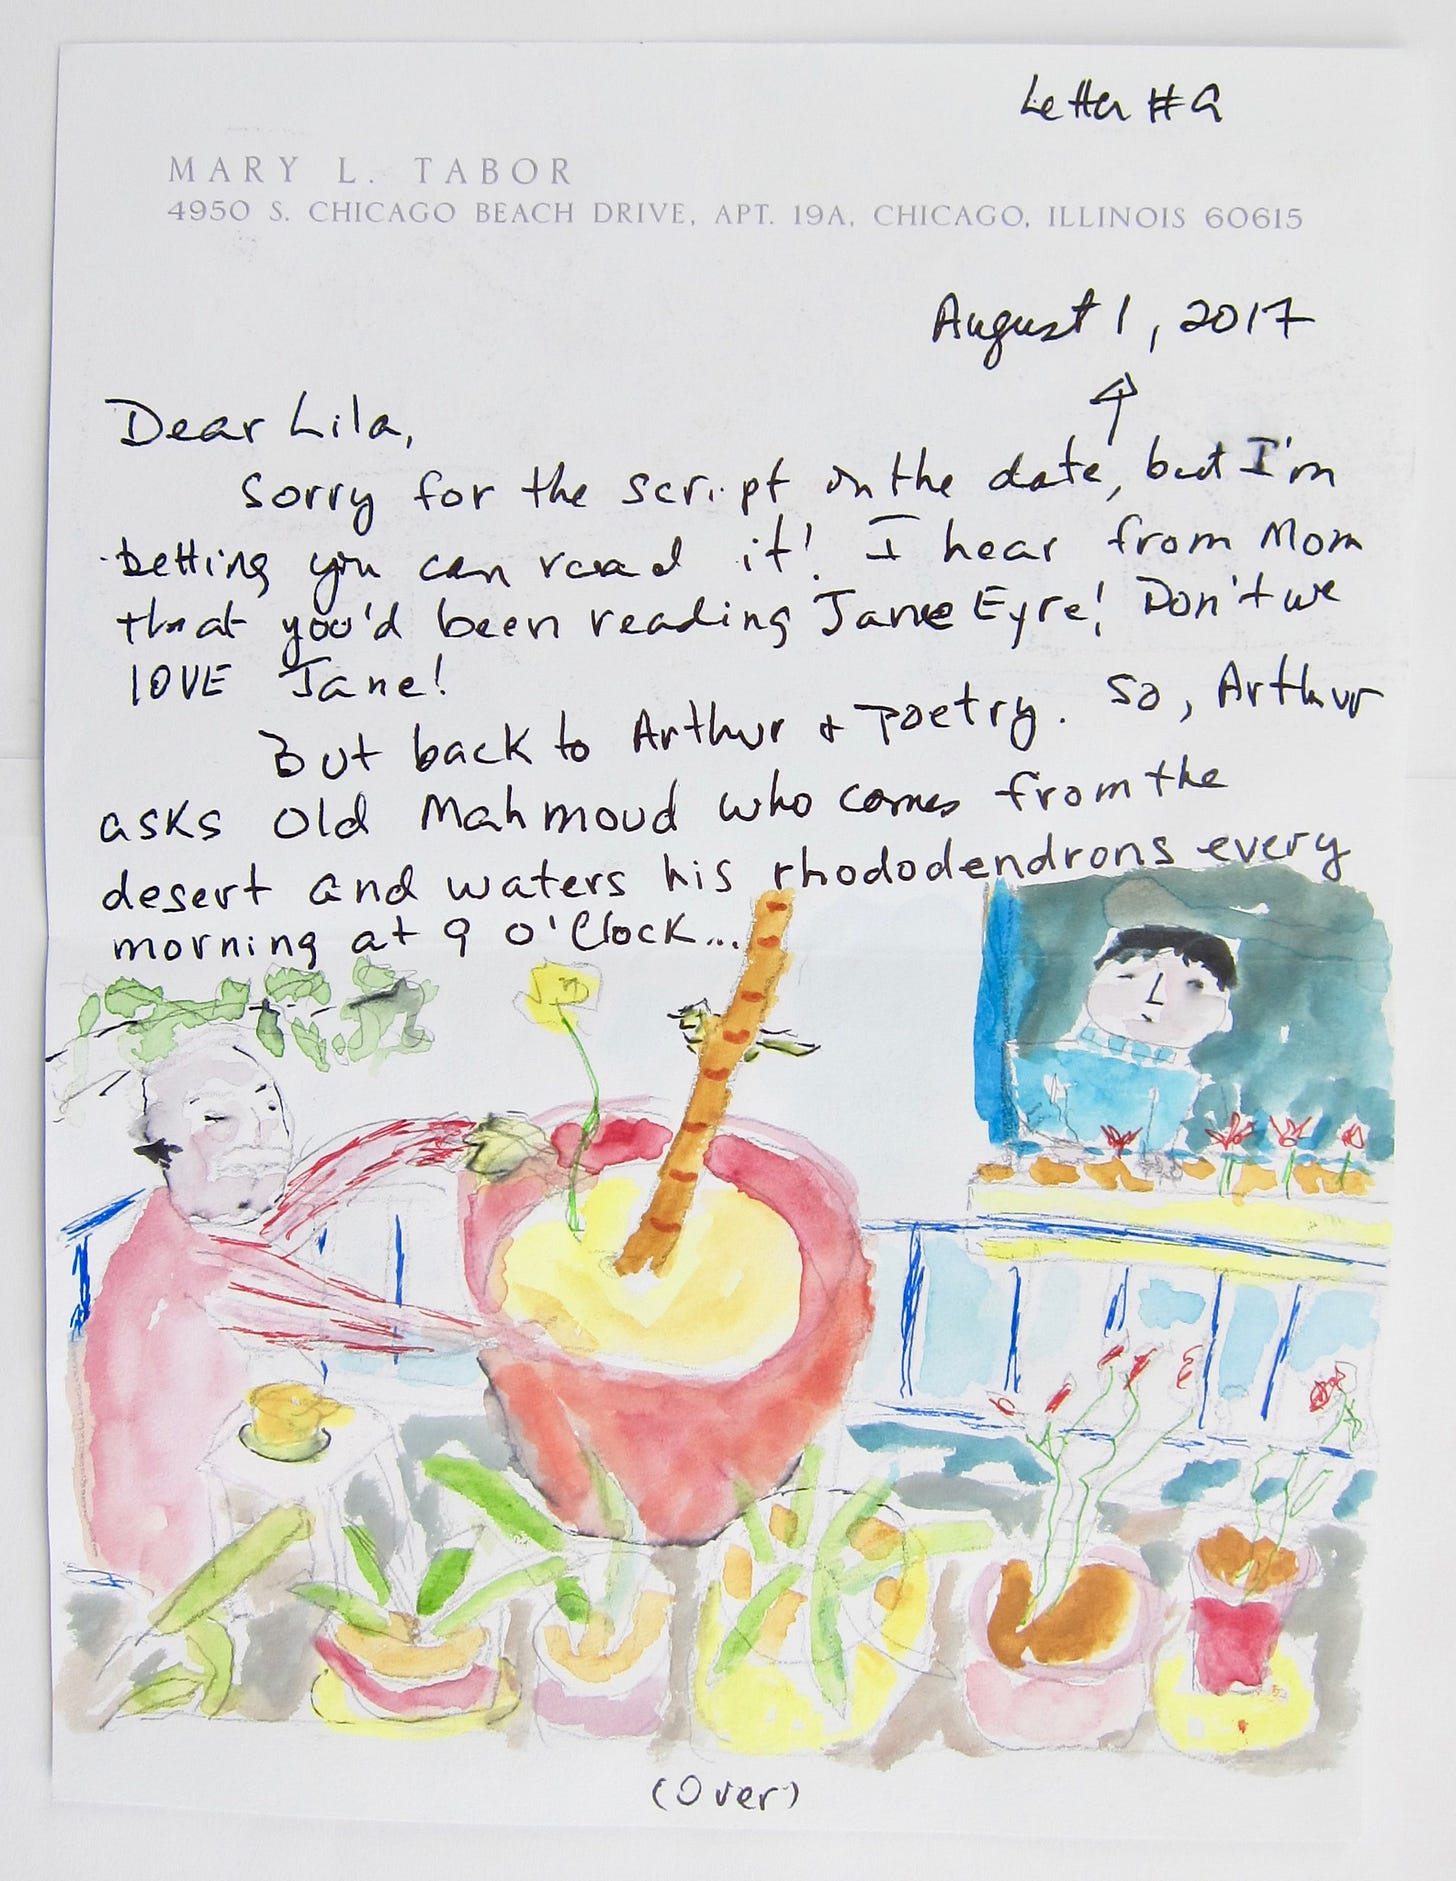 Letter #9
MARY L. TABOR
4950 S. CHICAGO BEACH DRIVE, APT. 19A, CHICAGO, ILLINOIS 60615
August 1, 2017
Dear Lila,
Sorry for the script in the date, but I'm
betting you can read it! I hear from Mom
that you'd been reading Jane Eyre! Don't we
lOVE Jane!
But back to Arthur + Poetry. So, Arthur
asks Old Mahmoud who comes from the
desert and waters his rhododendrons every
morning at 9 o'Clock...
(Over)